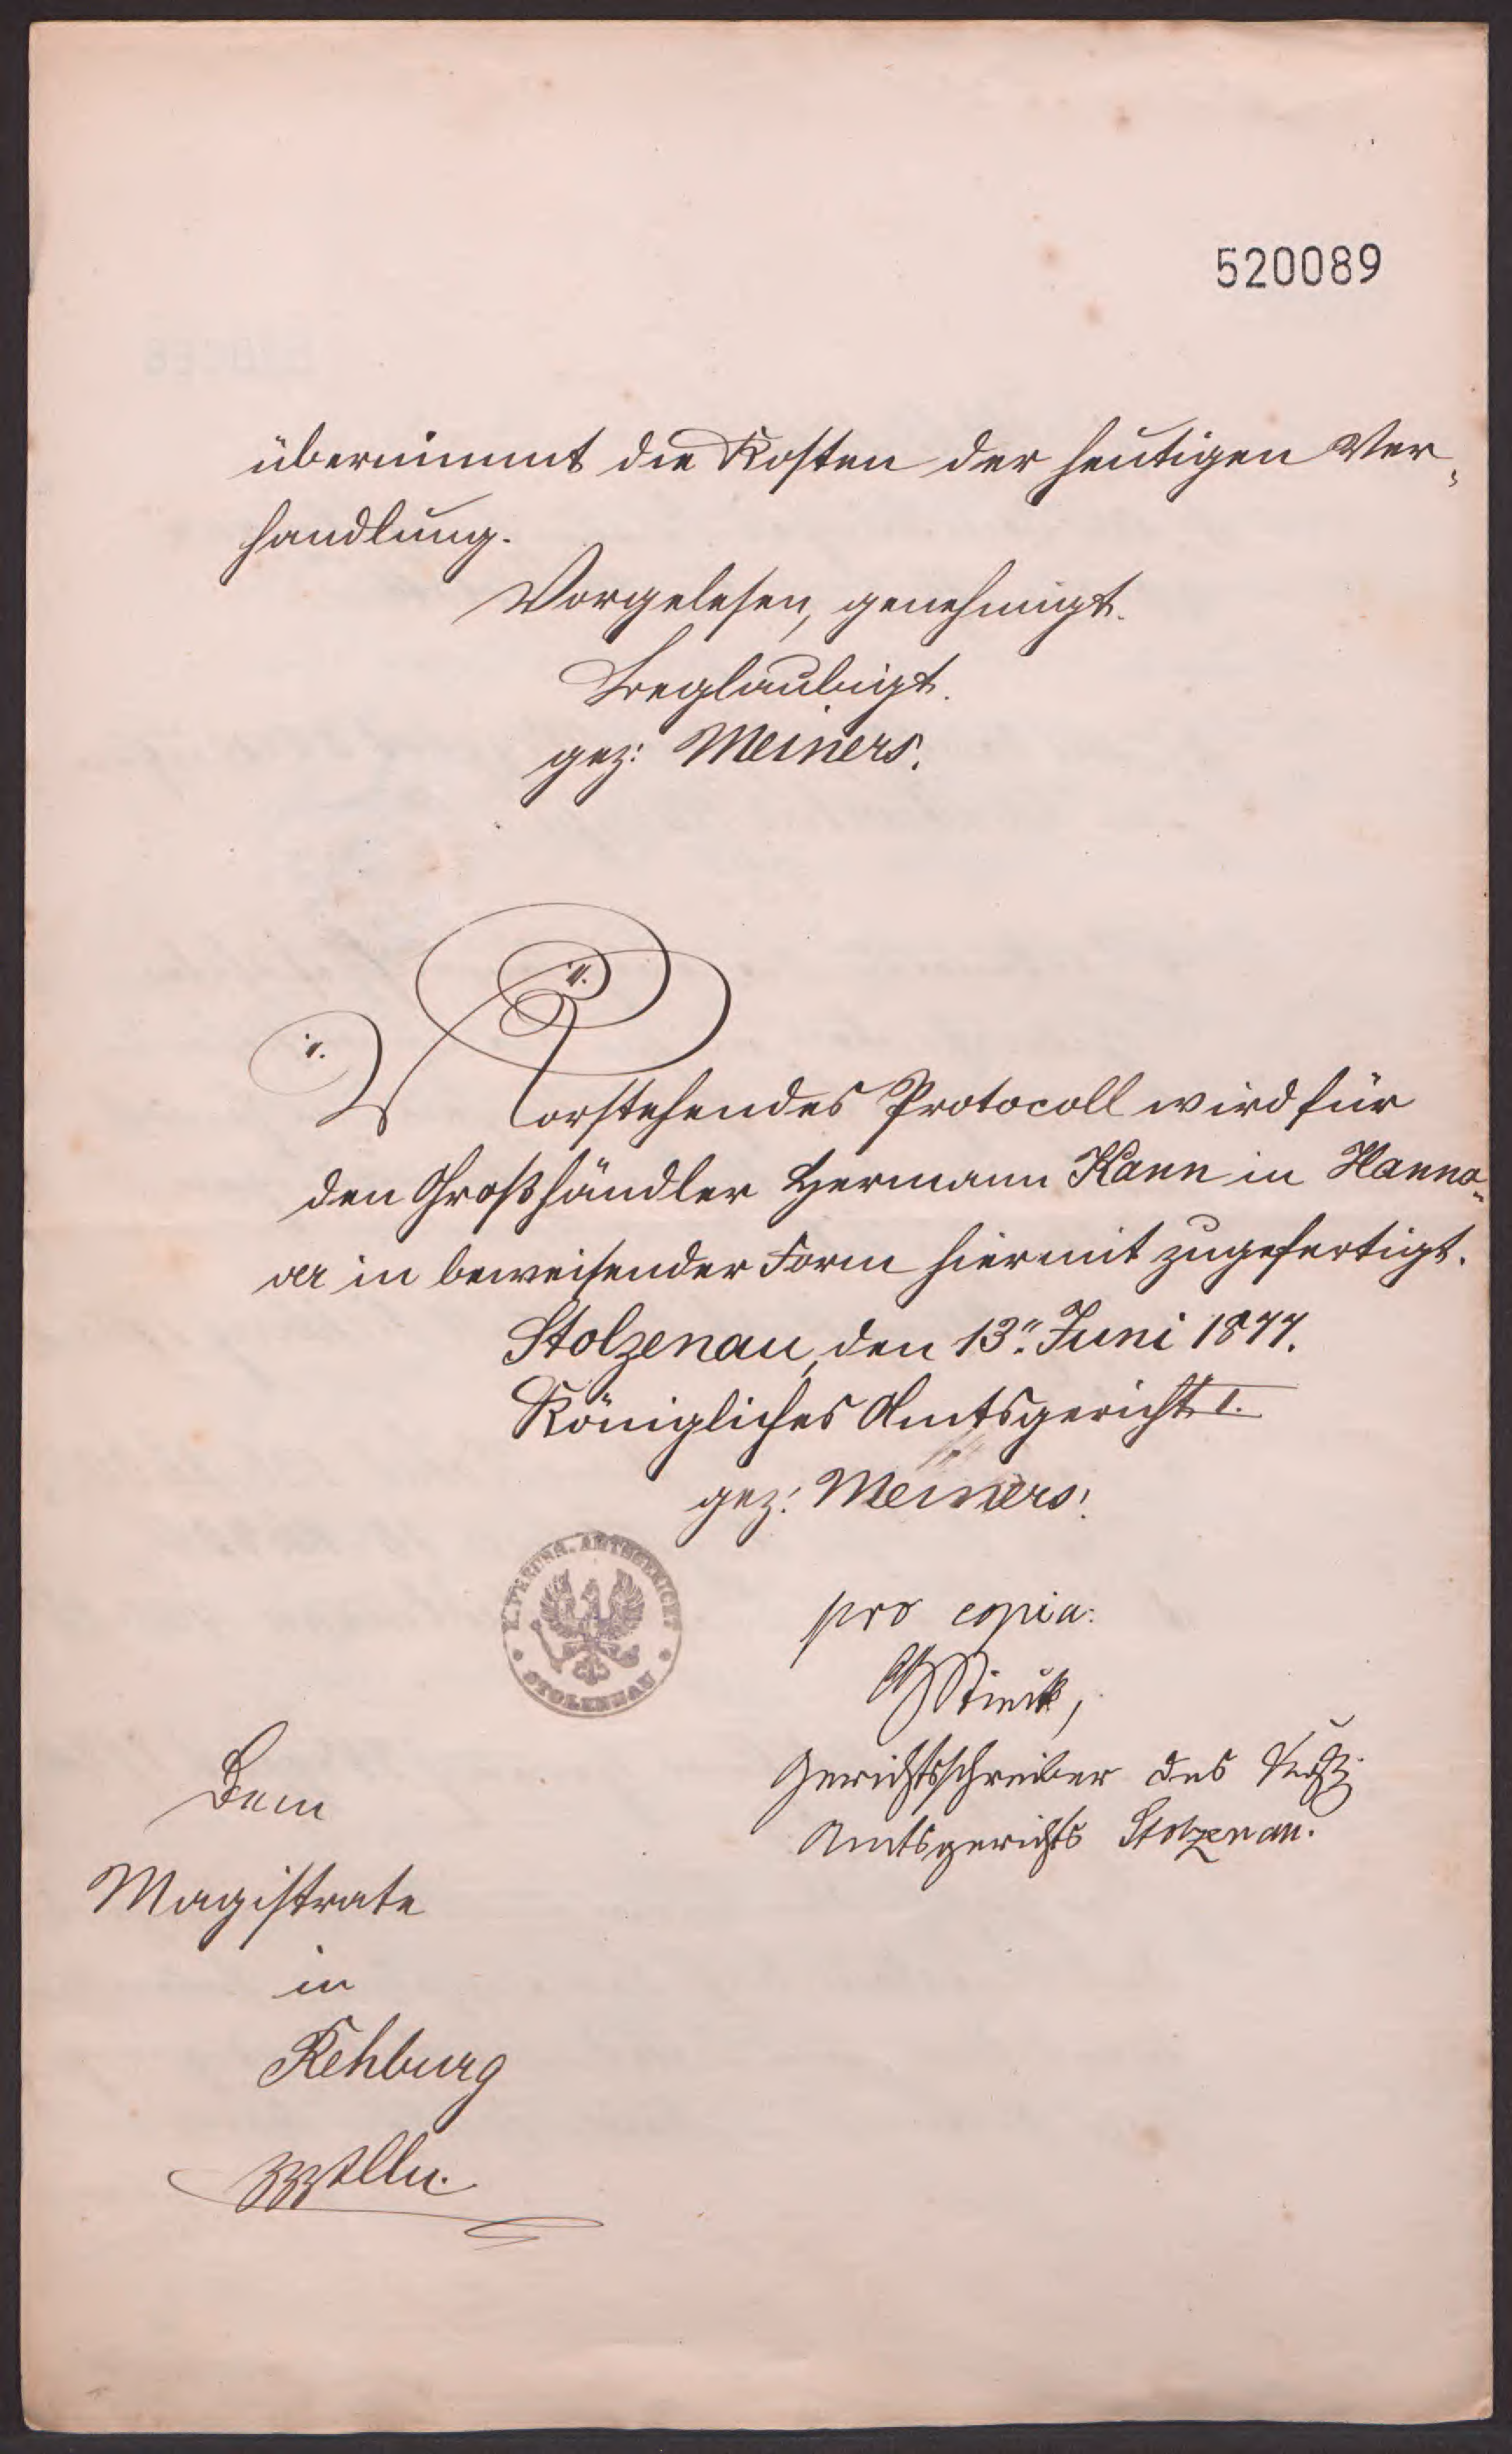 520089
übernimmt die Kosten der heutigen Ver-
handlung.
Vorgelesen, genehmigt.
Beglaubigt.
gez: Meiners.
Vorstehendes Protocoll wird für
den Großhändler Hermann Kann in Hanno-
ver in beweisender Form hiermit zugefertigt.
Stolzenau, den 13". Juni 1877.
Königliches Amtsgericht I.
gez: Meiners.
K. PREUSS. AMTSGERICHT
STOLZENAU
pro copia:
Gerichtsschreiber des
Amtsgerichts Stolzenau.
Dem
Magistrate
in
Rehburg